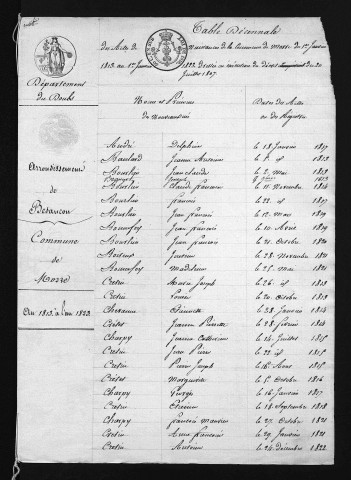 Table Décennale
des Actes de Naissances de la Commune de Morre du 1er Janvier
1813 au 1er Janvier 1823. Dressée en exécution du décret du 20
Juillet 1807.
Département
du Doubs
Arrondissement
de
Besançon
Commune
de
Morre
An 1813 à l'an 1823
Noms et Prénoms
des Naissances
Dates des Actes
ou des Registres
André Delphine le 18 Janvier 1817
Jeanne le 8 id 1813
Bourlier Jean claude le 2 Mai 1813
Joseph
Bourlier Claude francois le 11 Novembre 1814
Bourlier francois le 22 id 1817
Jean francois le 12 Mai 1819
Jean francois le 10 Avril 1819
Bourlier Jean francois le 21 Octobre 1820
le 28 Novembre 1821
Madeleine le 25 Mai 1821
Cretin Marie Joseph le 26 id 1813
Cretin Louise le 20 Octobre 1813
Etiennette le 28 Janvier 1814
Jeanne Pierrette le 28 février 1814
Charpy Jeanne Catherine le 14 Juillet 1815
Cretin Jean Pierre le 22 id 1815
Cretin Pierre Joseph le 16 Aout 1815
Marguerite le 5 Octobre 1816
Charpy le 16 Janvier 1817
Cretin Etienne le 18 Septembre 1818
Charpy francois Maurice le 27 Octobre 1821
Cretin Anne francoise le 29 Janvier 1821
Cretin Antoine le 24 décembre 1822